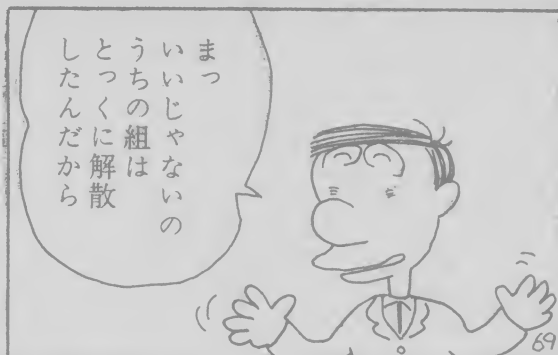 まっ
いいじゃないの
うちの組は
とっくに解散
したんだから
69